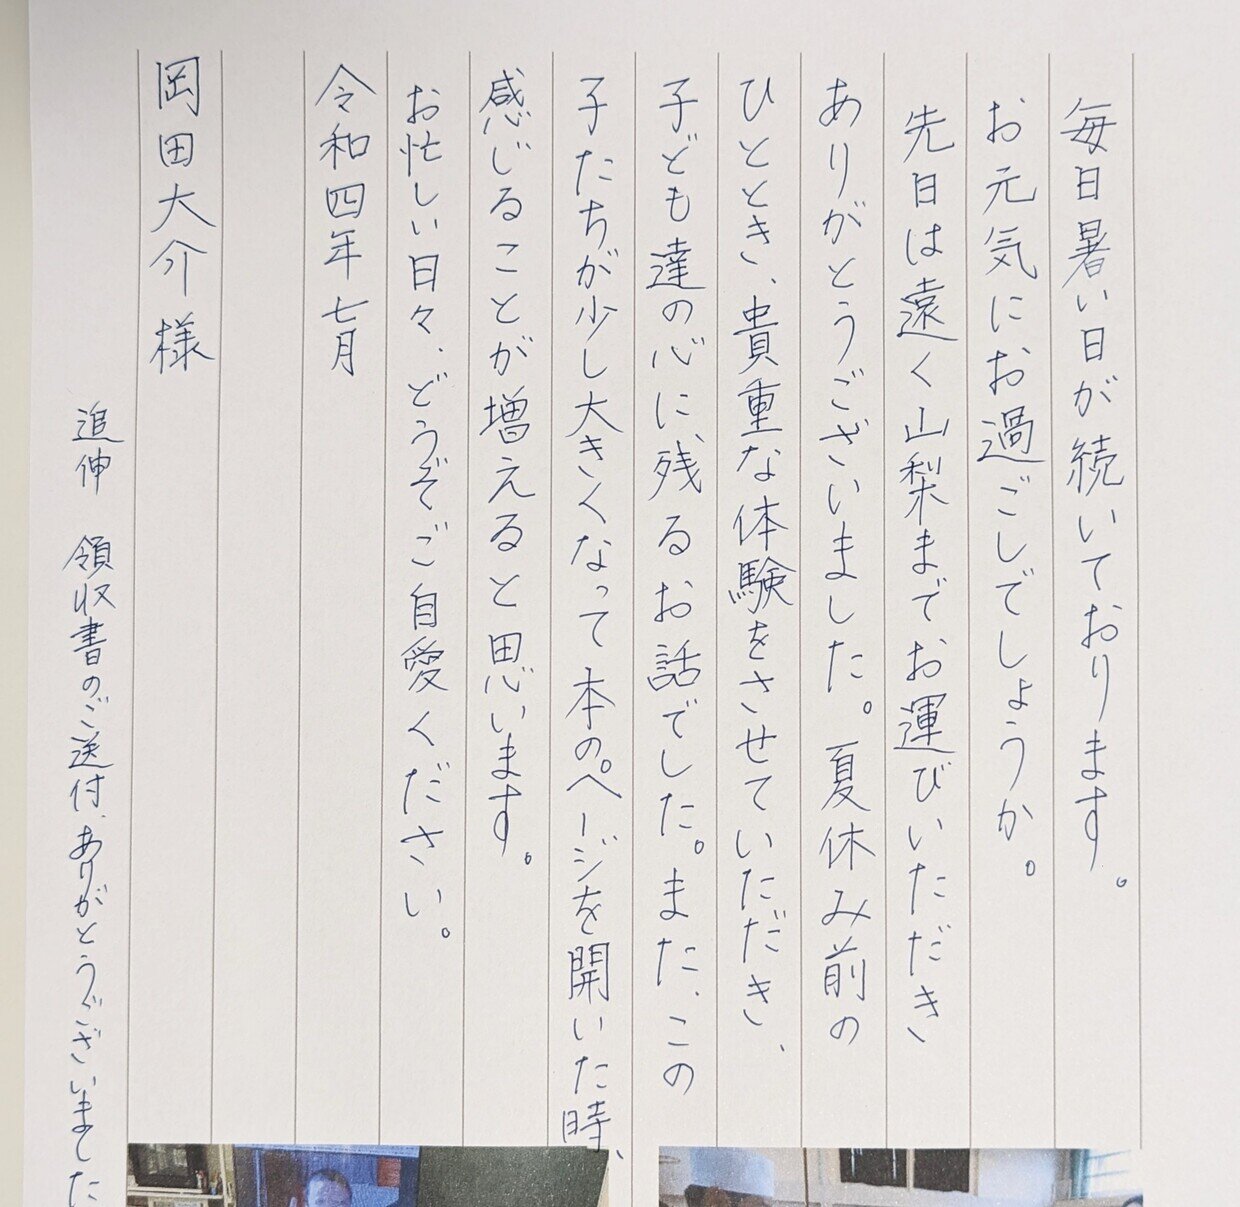 毎日暑い日が続いております。
お元気にお過ごしでしょうか。
先日は遠く山梨までお運びいただき
ありがとうございました。夏休み前の
ひととき、貴重な体験をさせていただき、
子ども達の心に残るお話でした。また、この
子たちが少し大きくなって本のページを開いた時、
感じることが増えると思います。
お忙しい日々、どうぞご自愛ください。
令和四年七月
岡田大介様
追伸 領収書のご送付、ありがとうございました